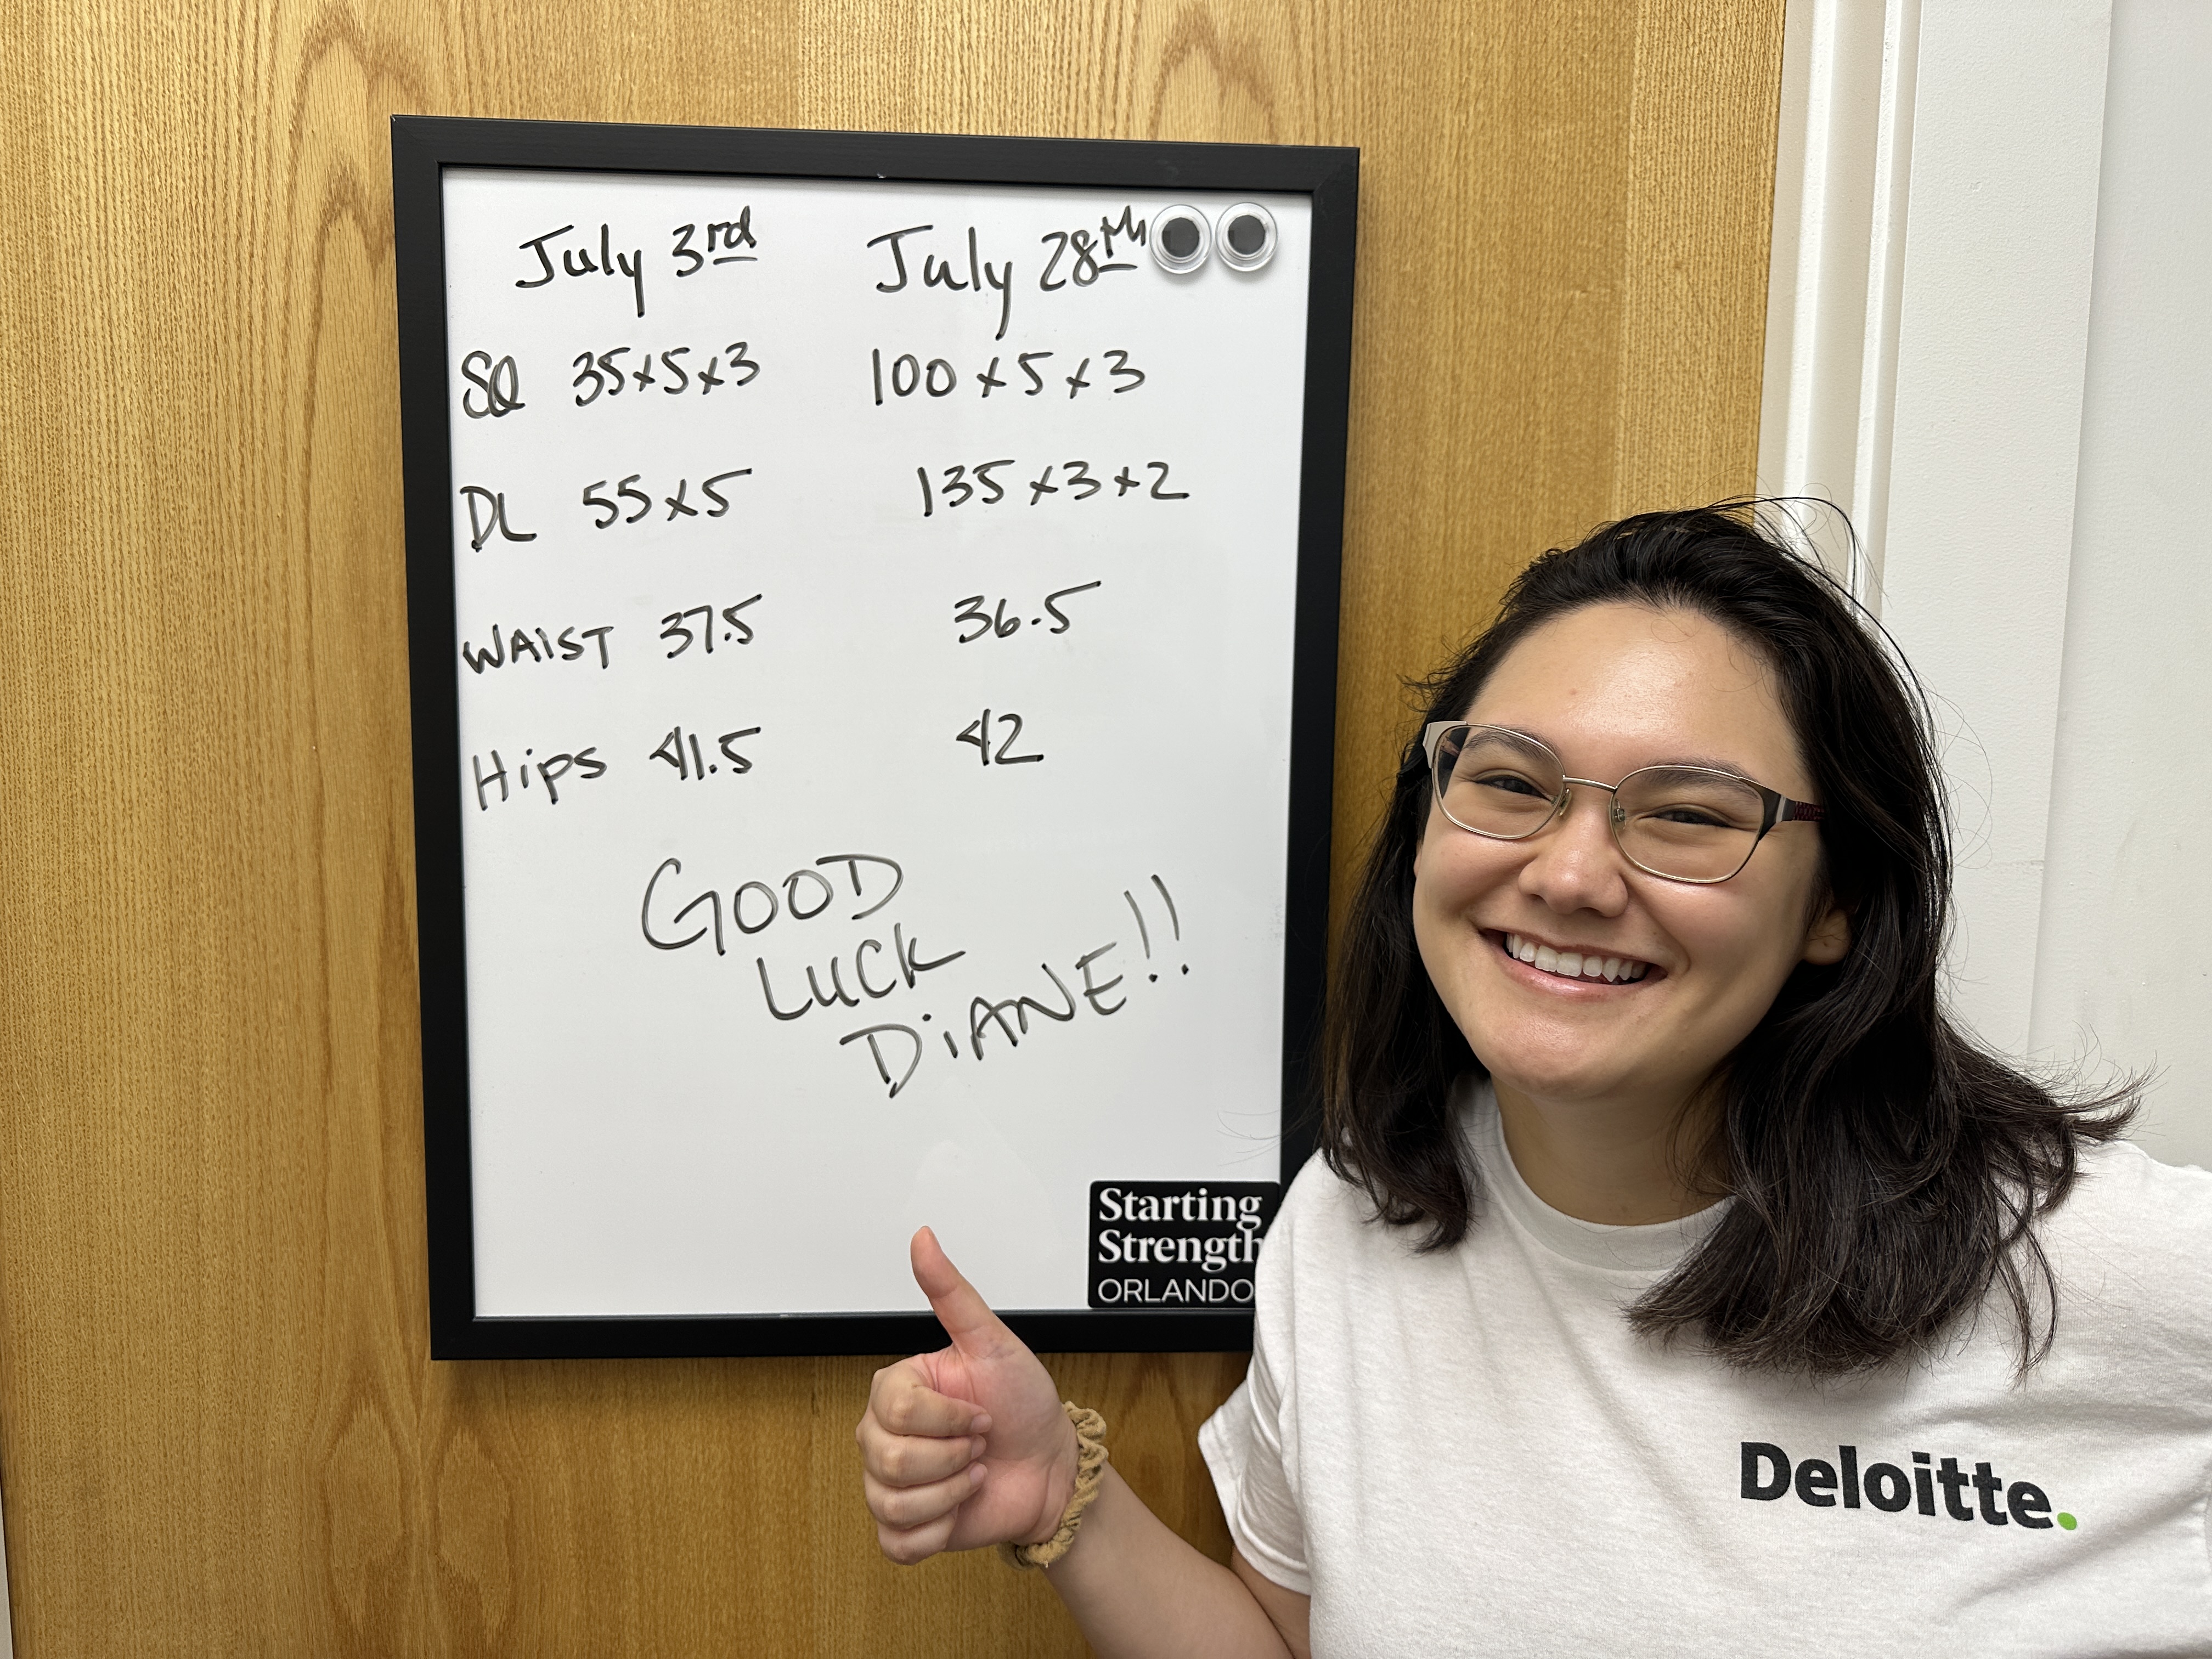 July 3rd July 28th
SQ 35x5x3 100x5x3
DL 55x5 135x3x2
WAIST 37.5 36.5
Hips 41.5 42
GOOD
LUCK
DiANE!!
Starting
Strength
ORLANDO
Deloitte.